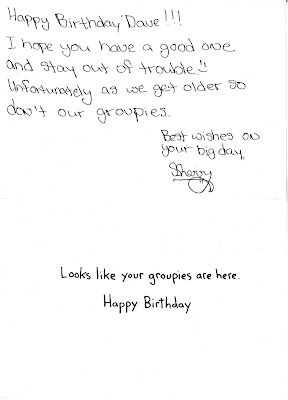 Happy Birthday Dave!!!
I hope you have a good one
and stay out of trouble :)
Unfortunately as we get older so
don't our groupies.
Best wishes on
your big day,
Sherry
Looks like your groupies are here.
Happy Birthday